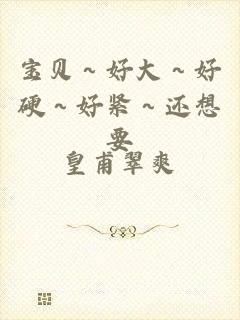 宝贝～好大～好
硬～好紧～还想
要
皇甫翠爽